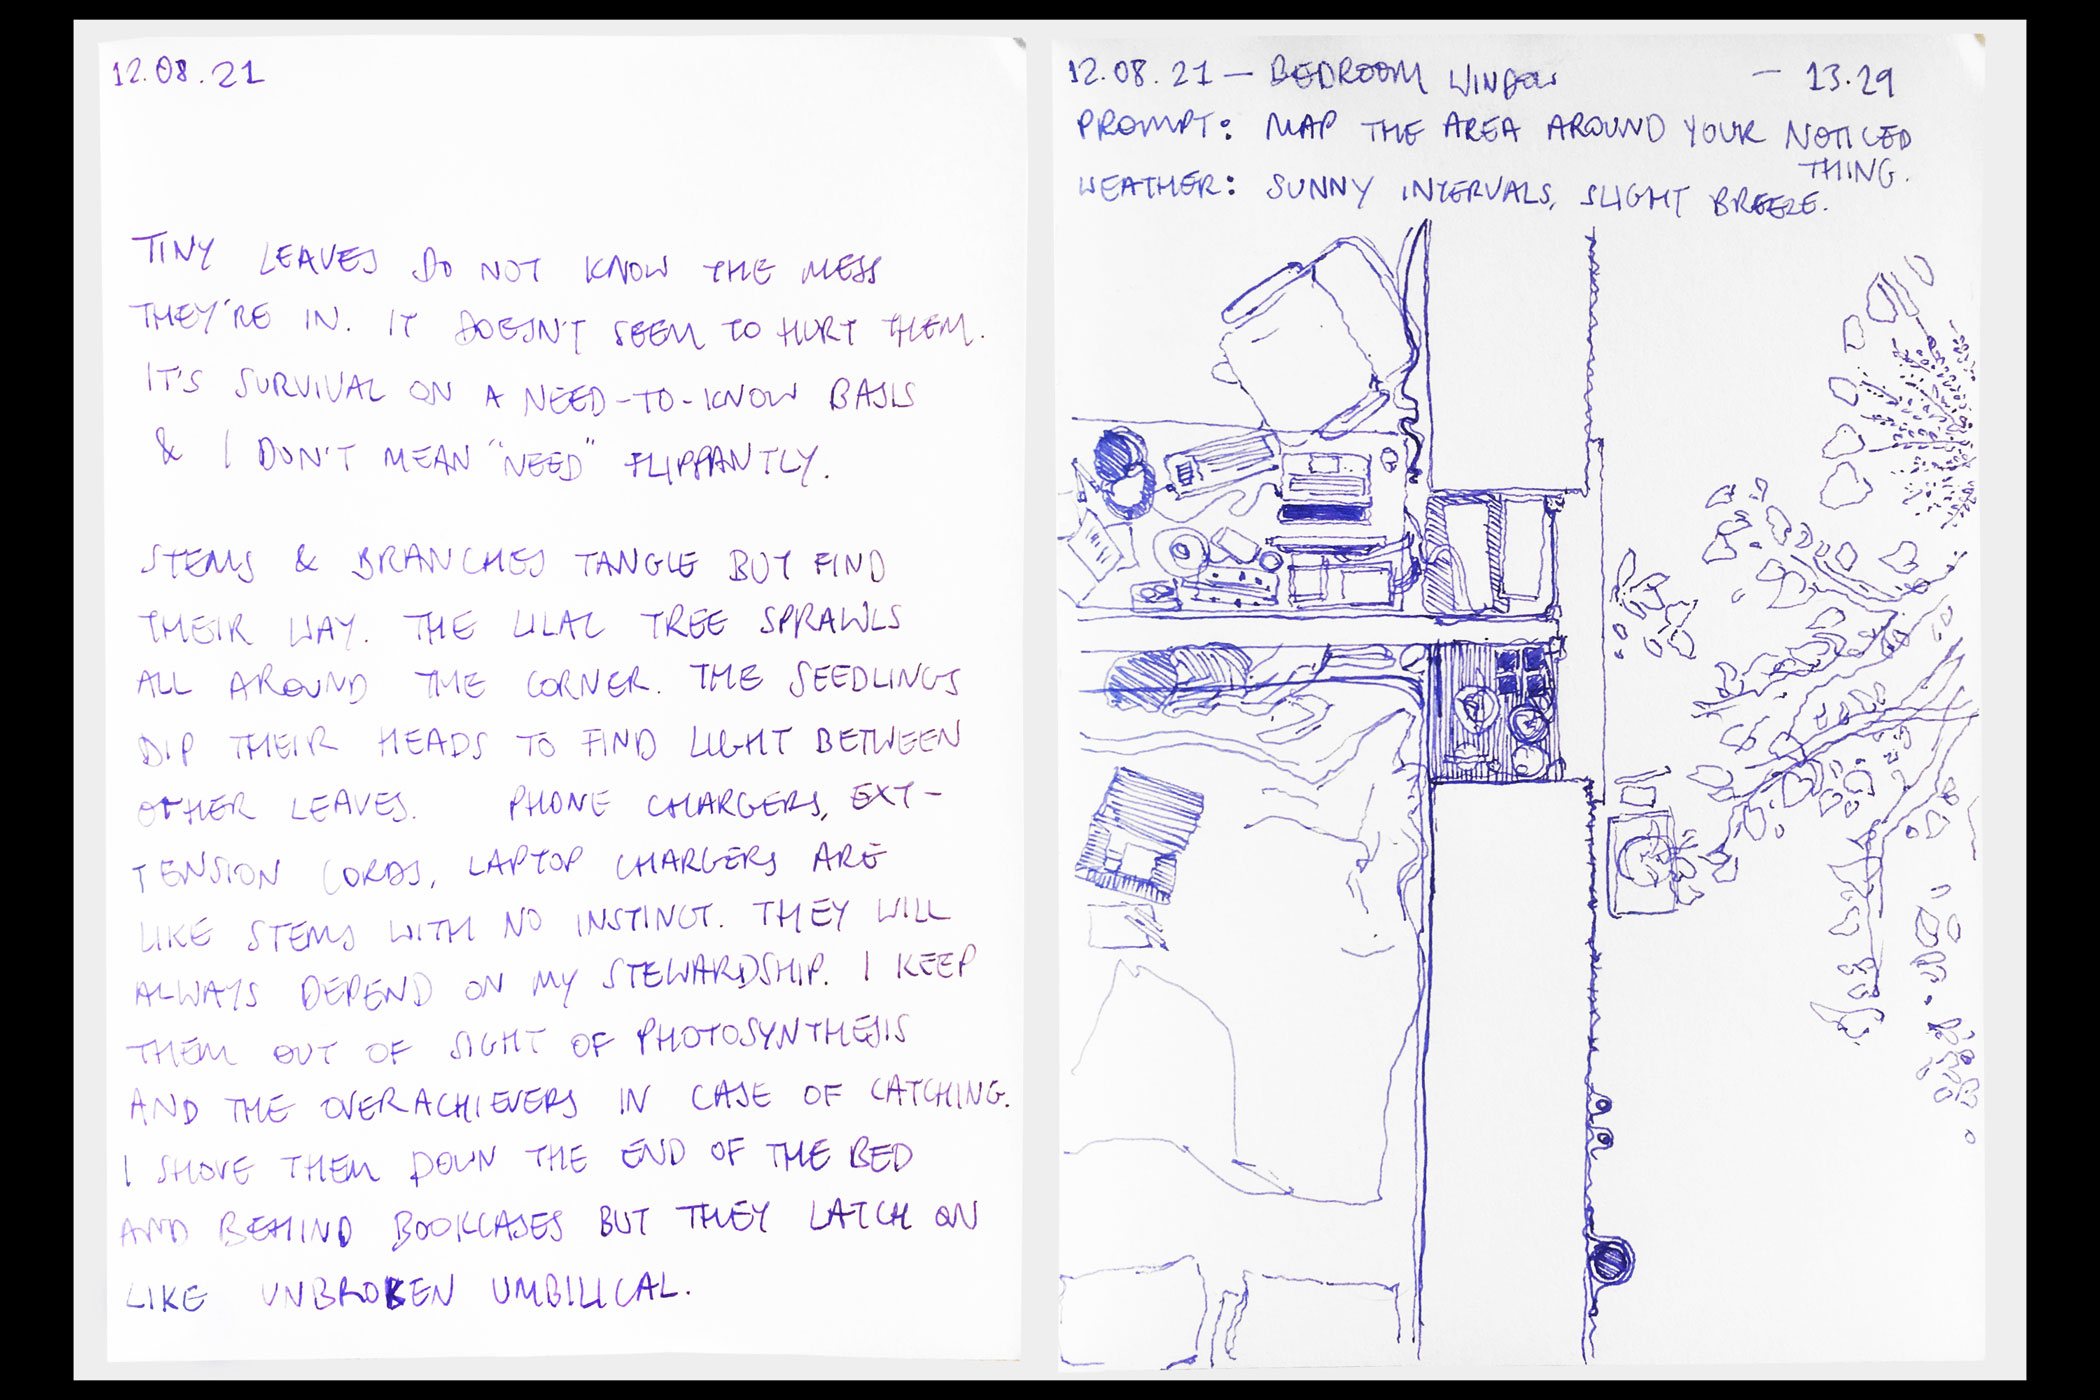 12.08.21
TINY LEAVES DO NOT KNOW THE MESS
THEY'RE IN. IT DOESN'T SEEM TO HURT THEM.
IT'S SURVIVAL ON A NEED-TO-KNOW BASIS
& I DON'T MEAN "NEED" FLIPPANTLY.
STEMS & BRANCHES TANGLE BUT FIND
THEIR WAY. THE LILAC TREE SPRAWLS
ALL AROUND THE CORNER. THE SEEDLINGS
DIP THEIR HEADS TO FIND LIGHT BETWEEN
OTHER LEAVES. PHONE CHARGERS, EXT-
TENSION CORDS, LAPTOP CHARGERS ARE
LIKE STEMS WITH NO INSTINCT. THEY WILL
ALWAYS DEPEND ON MY STEWARDSHIP. I KEEP
THEM OUT OF SIGHT OF PHOTOSYNTHESIS
AND THE OVERACHIEVERS IN CASE OF CATCHING.
I SHOVE THEM DOWN THE END OF THE BED
AND BEHIND BOOKCASES BUT THEY LATCH ON
LIKE UNBROKEN UMBILICAL.
12.08.21 — BEDROOM WINDOW — 13.29
PROMPT: MAP THE AREA AROUND YOUR NOTICED
THING.
WEATHER: SUNNY INTERVALS, SLIGHT BREEZE.